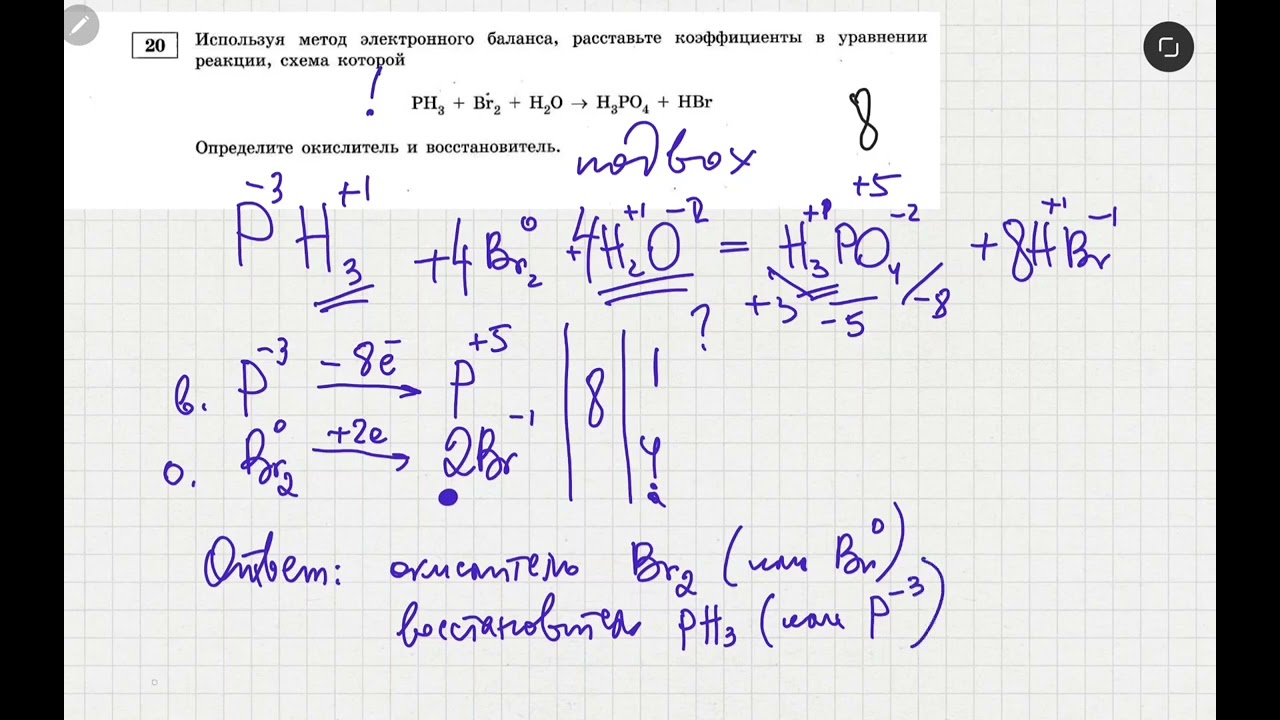 20
Используя метод электронного баланса, расставьте коэффициенты в уравнении
реакции, схема которой
!
PH₃ + Br₂ + H₂O → H₃PO₄ + HBr
8
Определите окислитель и восстановитель.
P⁻³H₃⁺¹ + 4Br₂⁰ + 4H₂⁺¹O⁻² = H₃⁺¹P⁺⁵O₄⁻² + 8H⁺¹Br⁻¹
+3 -5 / -8
?
в. P⁻³ -8e⁻ → P⁺⁵ | 8 | 1
о. Br₂⁰ +2e → 2Br⁻¹ | 4
Ответ: окислитель Br₂ (или Br⁰)
восстановитель PH₃ (или P⁻³)